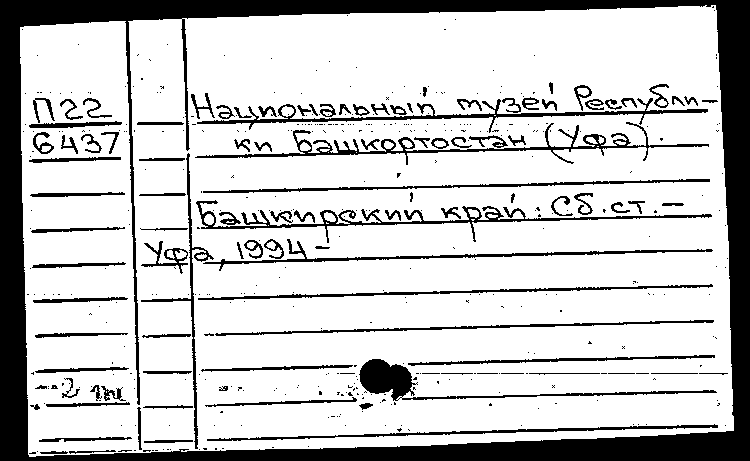 П22
6437
Национальный музей Республи-
ки Башкортостан (Уфа).
Башкирский край: Сб. ст. –
Уфа, 1994 –
2